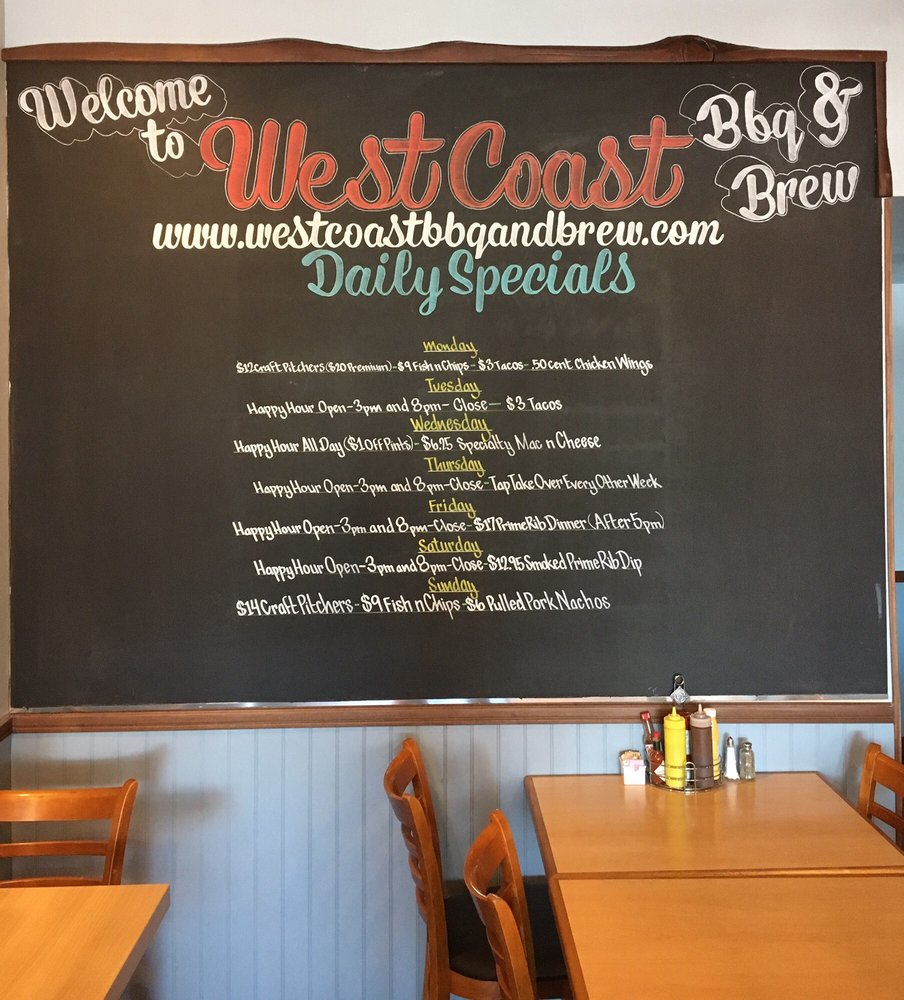 Welcome to West Coast Bbq & Brew
www.westcoastbbqandbrew.com
Daily Specials
Monday
$12 Craft Pitchers ($20 Premium) - $9 Fish n Chips - $3 Tacos - .50 cent Chicken Wings
Tuesday
Happy Hour Open-3pm and 8pm-Close— $3 Tacos
Wednesday
Happy Hour All Day ($1 Off Pints) - $6.95 Specialty Mac n Cheese
Thursday
Happy Hour Open-3pm and 8pm-Close-Tap Take Over Every Other Week
Friday
Happy Hour Open-3pm and 8pm-Close-$17 Prime Rib Dinner (After 5pm)
Saturday
Happy Hour Open-3pm and 8pm-Close-$12.95 Smoked Prime Rib Dip
Sunday
$14 Craft Pitchers - $9 Fish n Chips - $6 Pulled Pork Nachos